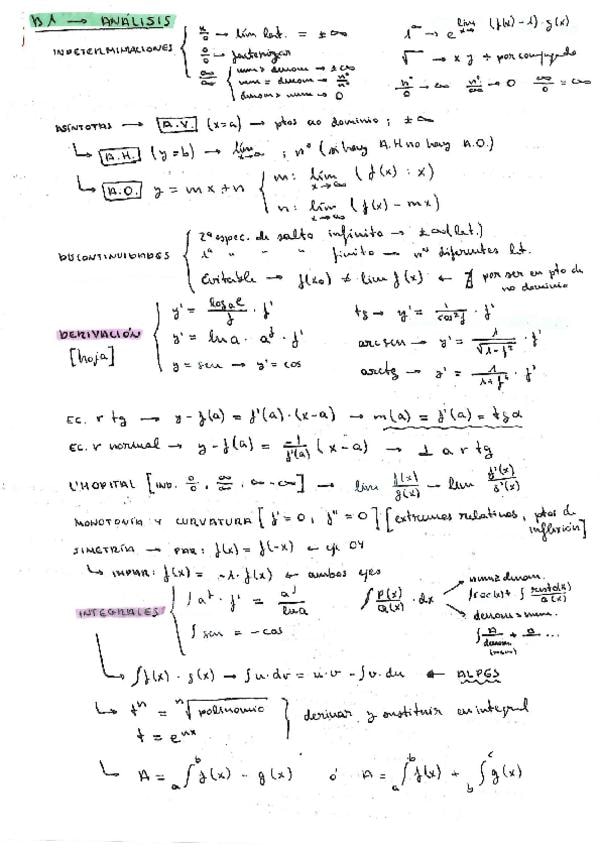 B1 → ANÁLISIS
INDETERMINACIONES
x/0 → lím lat. = ±∞
0/0 → factorizar
∞/∞ num > denom → ±∞
num = denom → nº/nº
denom > num → 0
1^∞ → e^lim x→ (f(x)-1)·g(x)
√ → x y ÷ por conjugado
nº/0 → ∞ nº/∞ → 0 ∞/0 = ∞
ASÍNTOTAS → A.V. (x=a) → ptos no dominio ; ±∞
↳ A.H. (y=b) → lím x→∞ ; nº (si hay A.H no hay A.O.)
↳ A.O. y = mx+n
m: lím x→∞ (f(x) : x)
n: lím x→∞ (f(x) - mx)
DISCONTINUIDADES
2ª espec. de salto infinito → ±∞ (lat.)
1ª " " " finito → nos diferentes lat.
Evitable → f(x0) ≠ lim f(x) ← ∄ por ser en pto de no dominio
DERIVACIÓN
[hoja]
y' = logₐe/f · f'
y' = ln a · a^f · f'
y = sen → y' = cos
tg → y' = 1/cos²f · f'
arcsen → y' = 1/√1-f² · f'
arctg → y' = 1/1+f² · f'
EC. r tg → y - f(a) = f'(a)·(x-a) → m(a) = f'(a) = tg α
EC. r normal → y - f(a) = -1/f'(a) (x-a) → ⊥ a r tg
L'HOPITAL [IND. 0/0, ∞/∞, ∞-∞] → lím f(x)/g(x) → lím f'(x)/g'(x)
MONOTONÍA Y CURVATURA [f'=0, f''=0] [extremos relativos, ptos de inflexión]
SIMETRÍA → PAR: f(x) = f(-x) ← eje OY
↳ IMPAR: f(x) = -1·f(x) ← ambos ejes
INTEGRALES
∫ a^f · f' = a^f/ln a
∫ sen = -cos
∫ P(x)/Q(x) · dx
num ≥ denom.
∫ coc(x) + ∫ resto(x)/Q(x)
denom > num.
∫ A/denom + B ...
↳ ∫ f(x)·g(x) → ∫ u·dv = u·v - ∫ v·du ← ALPES
↳ tⁿ = ⁿ√polinomio
t = e^nx
derivar y sustituir en integral
↳ A = a∫b f(x) - g(x) ó A = a∫b f(x) + b∫c g(x)